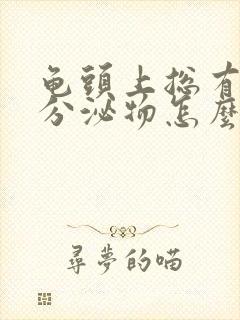 龟頭上総有
分泌物怎麼
尋夢的喵